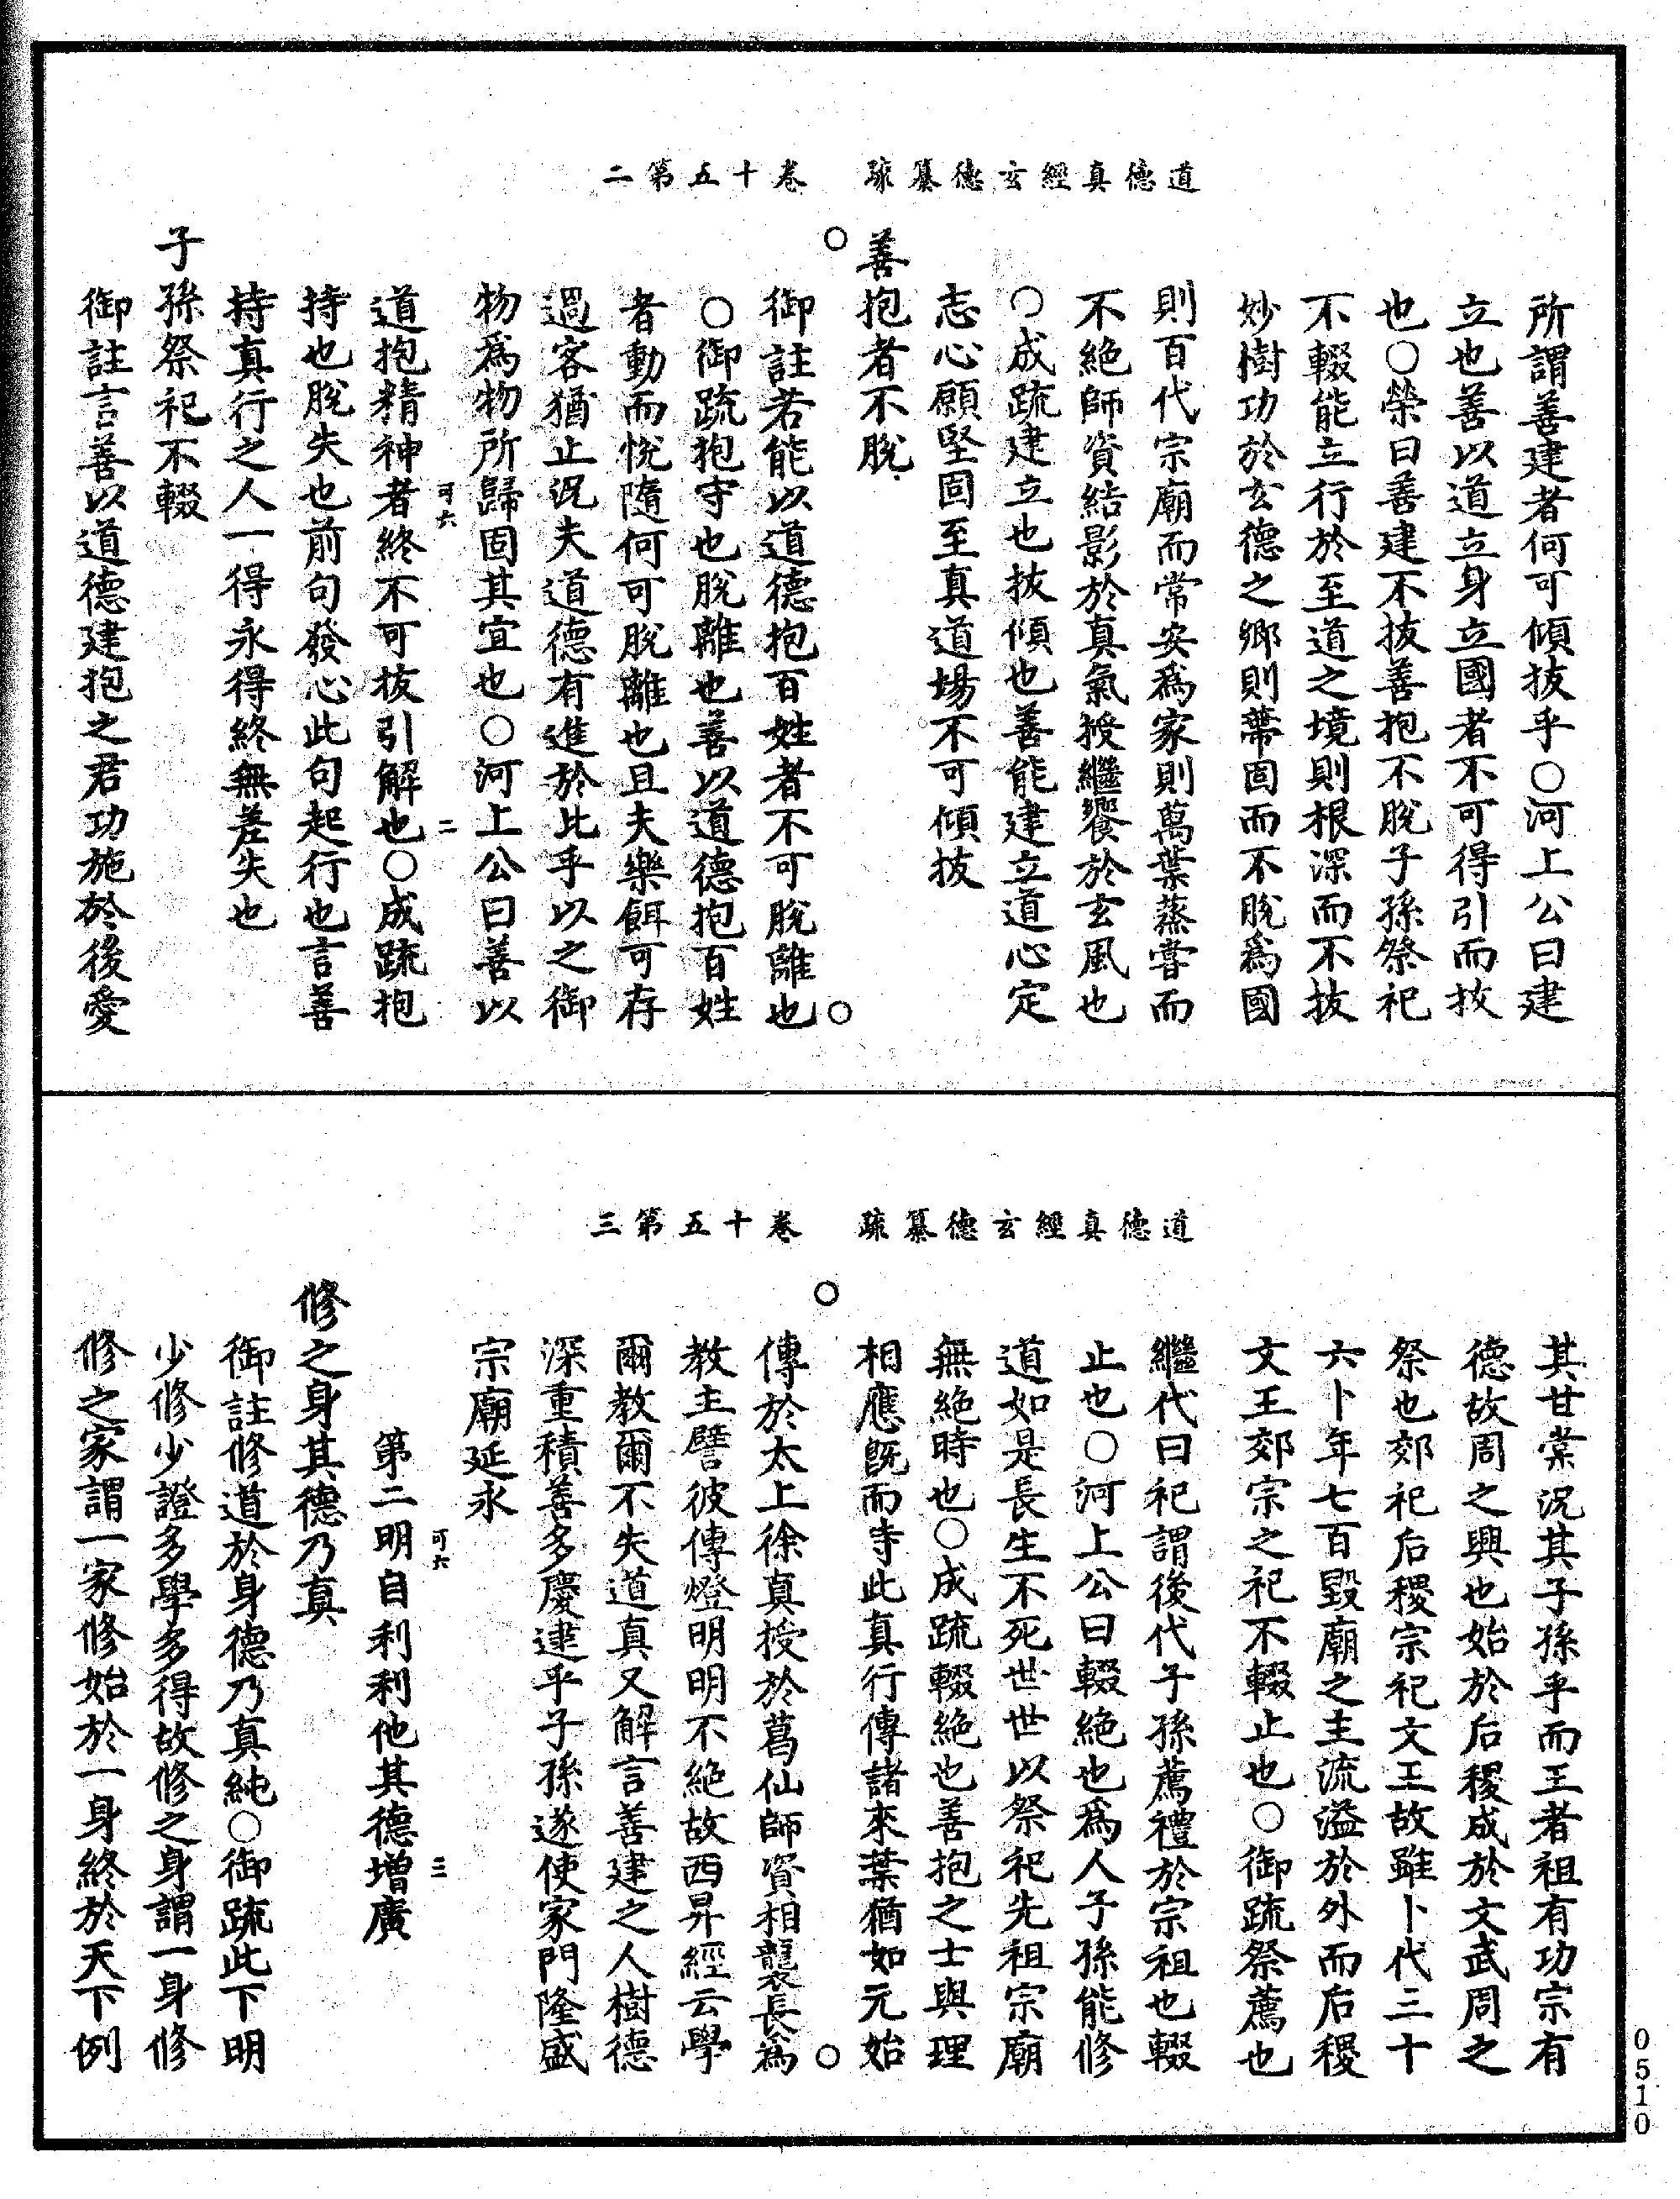 道德真經玄德纂疏　卷十五第二
所謂善建者何可傾拔乎○河上公曰建
立也善以道立身立國者不可得引而拔
也○榮曰善建不拔善抱不脫子孫祭祀
不輟能立行於至道之境則根深而不拔
妙樹功於玄德之鄉則蔕固而不脫爲國
則百代宗廟而常安爲家則萬葉蒸嘗而
不絕師資結影於真氣授繼饗於玄風也
○成疏建立也拔傾也善能建立道心定
志心願堅固至真道場不可傾拔
善抱者不脫
御註若能以道德抱百姓者不可脫離也
○御疏抱守也脫離也善以道德抱百姓
者動而悅隨何可脫離也且夫樂餌可存
過客猶止況夫道德有進於此乎以之御
物爲物所歸固其宜也○河上公曰善以
道抱精神者終不可拔引解也○成疏抱
可六
二
持也脫失也前句發心此句起行也言善
持真行之人一得永得終無差失也
子孫祭祀不輟
御註言善以道德建抱之君功施於後愛
道德真經玄德纂疏　卷十五第三
其甘棠況其子孫乎而王者祖有功宗有
德故周之興也始於后稷成於文武周之
祭也郊祀后稷宗祀文王故雖卜代三十
六卜年七百毀廟之主流溢於外而后稷
文王郊宗之祀不輟止也○御疏祭薦也
繼代曰祀謂後代子孫薦禮於宗祖也輟
止也○河上公曰輟絕也爲人子孫能修
道如是長生不死世世以祭祀先祖宗廟
無絕時也○成疏輟絕也善抱之士與理
相應既而寺此真行傳諸來葉猶如元始
傳於太上徐真授於葛仙師資相襲長爲
教主譬彼傳燈明明不絕故西昇經云學
爾教爾不失道真又解言善建之人樹德
深重積善多慶逮乎子孫遂使家門隆盛
宗廟延永
第二明自利利他其德增廣
可六
三
修之身其德乃真
御註修道於身德乃真純○御疏此下明
少修少證多學多得故修之身謂一身修
修之家謂一家修始於一身終於天下例
0510